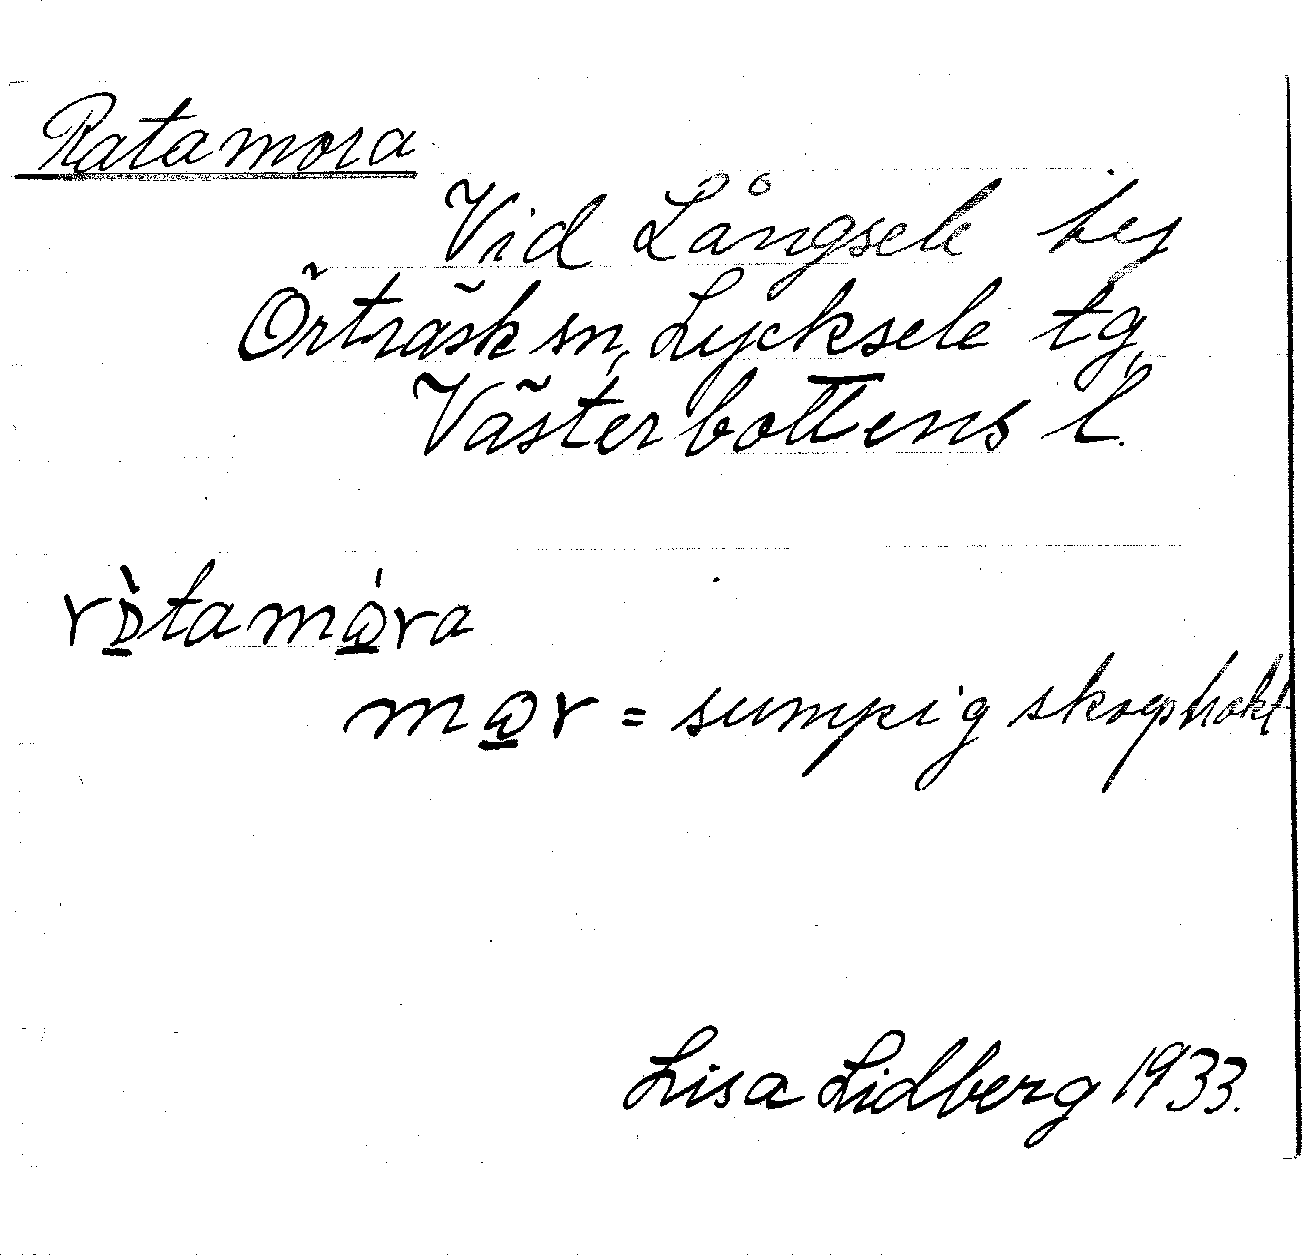 Ratamora
Vid Långsele by
Örträsk sn, Lycksele tg,
Västerbottens l.
mɷr = sumpig skogstrakt
Lisa Lidberg 1933.